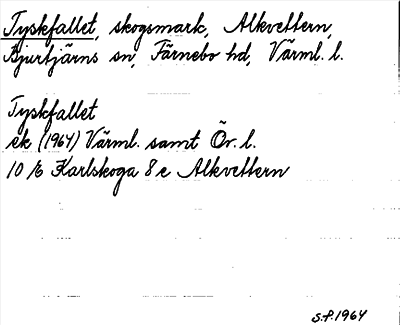 Tyskfallet, skogsmark, Alkvettern,
Bjurtjärns sn, Färnebo hd, Värml. l.
Tyskfallet
ek (1964) Värml. samt Ör. l.
10 /6 Karlskoga 8 e Alkvettern
S.P. 1964